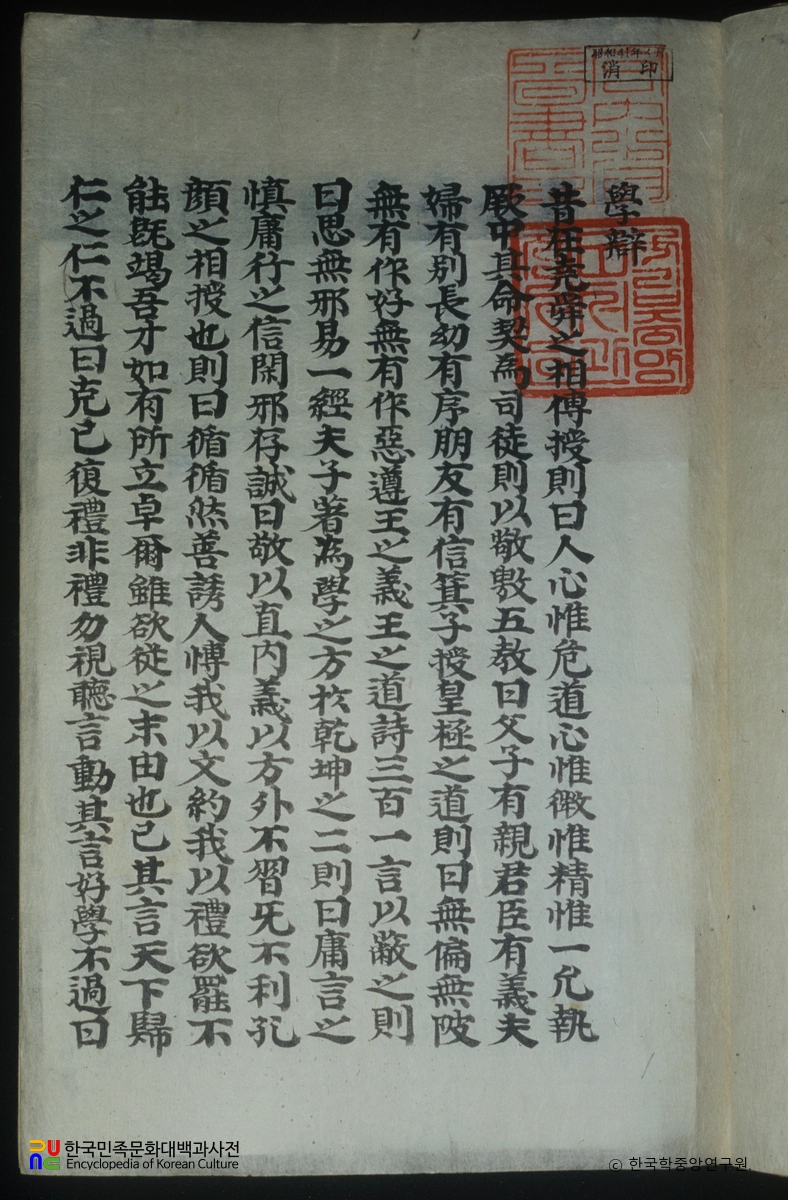 學辯
昔在堯舜之相傳授則曰人心惟危道心惟微惟精惟一允執
厥中其命契為司徒則以敬敷五教曰父子有親君臣有義夫
婦有別長幼有序朋友有信箕子授皇極之道則曰無偏無陂
無有作好無有作惡遵王之義王之道詩三百一言以蔽之則
曰思無邪易一經夫子著為學之方於乾坤之二則曰庸言之
慎庸行之信閑邪存誠曰敬以直內義以方外不習无不利孔
顏之相授也則曰循循然善誘人博我以文約我以禮欲罷不
能旣竭吾才如有所立卓爾雖欲從之末由也已其言天下歸
仁之仁不過曰克己復禮非禮勿視聽言動其言好學不過曰
消印
한국민족문화대백과사전
Encyclopedia of Korean Culture
© 한국학중앙연구원